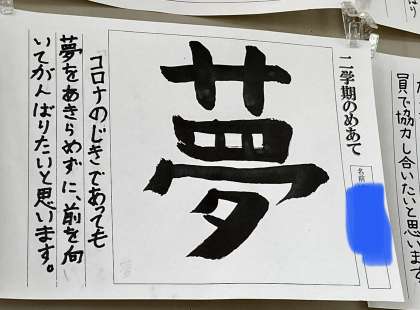 二学期のめあて
名前
夢
コロナのじきであっても
夢をあきらめずに、前を向
いてがんばりたいと思います。
員で協力し合いたいと思います